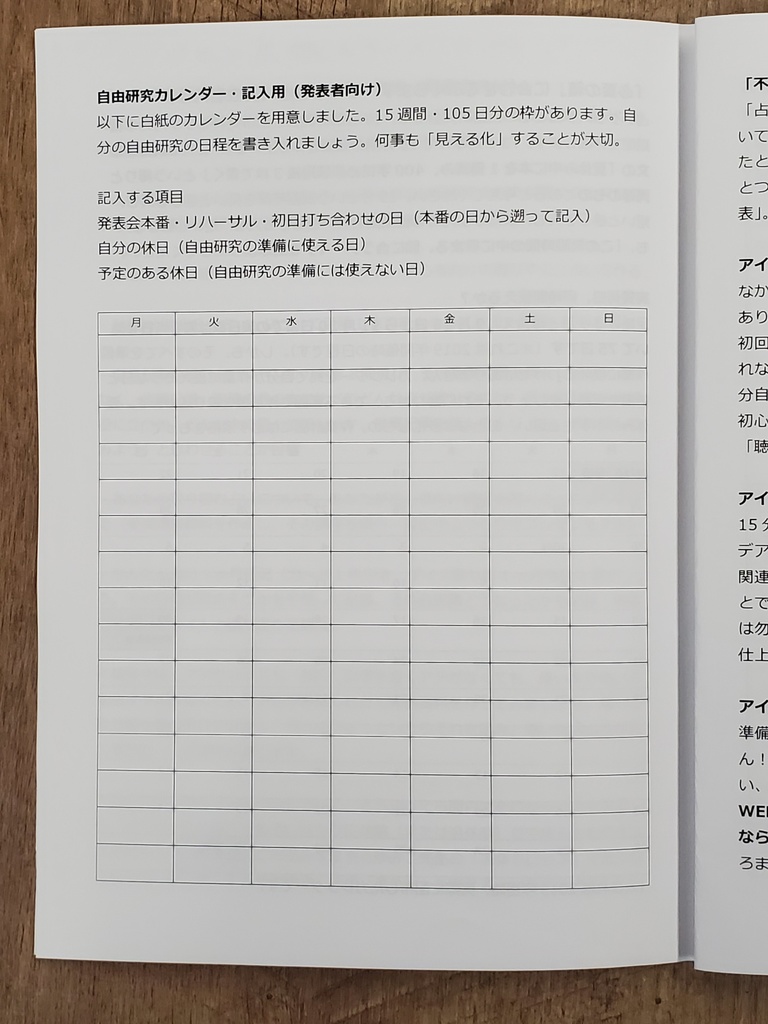 自由研究カレンダー・記入用（発表者向け）
以下に白紙のカレンダーを用意しました。15 週間・105 日分の枠があります。自
分の自由研究の日程を書き入れましょう。何事も「見える化」することが大切。
記入する項目
発表会本番・リハーサル・初日打ち合わせの日（本番の日から遡って記入）
自分の休日（自由研究の準備に使える日）
予定のある休日（自由研究の準備には使えない日）
月 火 水 木 金 土 日
「不
「占
いて
たと
とつ
表」。
アイ
なか
あり
初回
れな
分自
初心
「聴
アイ
15 分
デア
関連
とで
は勿
仕上
アイ
準備
ん！
い、
WEB
なら
ろま